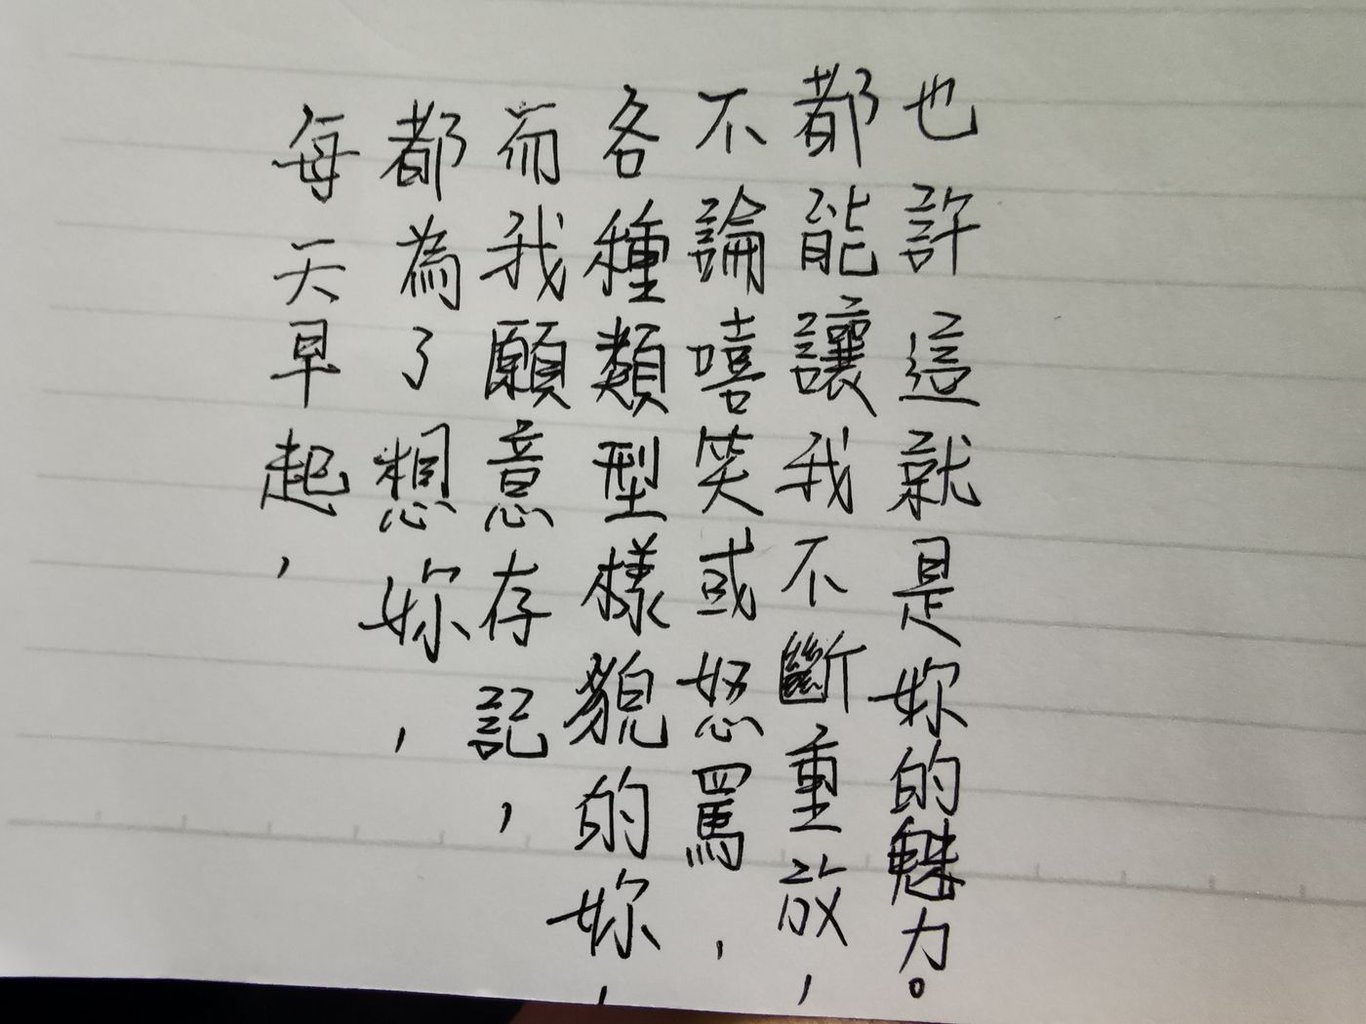 每天早起，
都為了想妳，
而我願意存記，
各種類型樣貌的妳，
不論嘻笑或怒罵，
都能讓我不斷重放，
也許這就是妳的魅力。